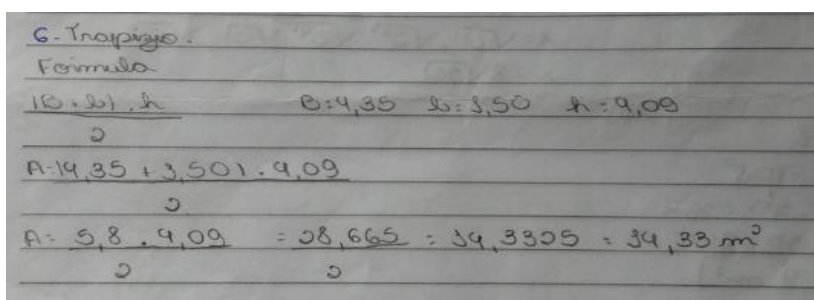 6- Trapízio.
Formula
(B+b).h B=4,35 b=1,50 h=4,09
2
A=(4,35 + 1,50).4,09
2
A= 5,8 . 4,09 = 28,665 = 14,3325 = 14,33 m²
2 2